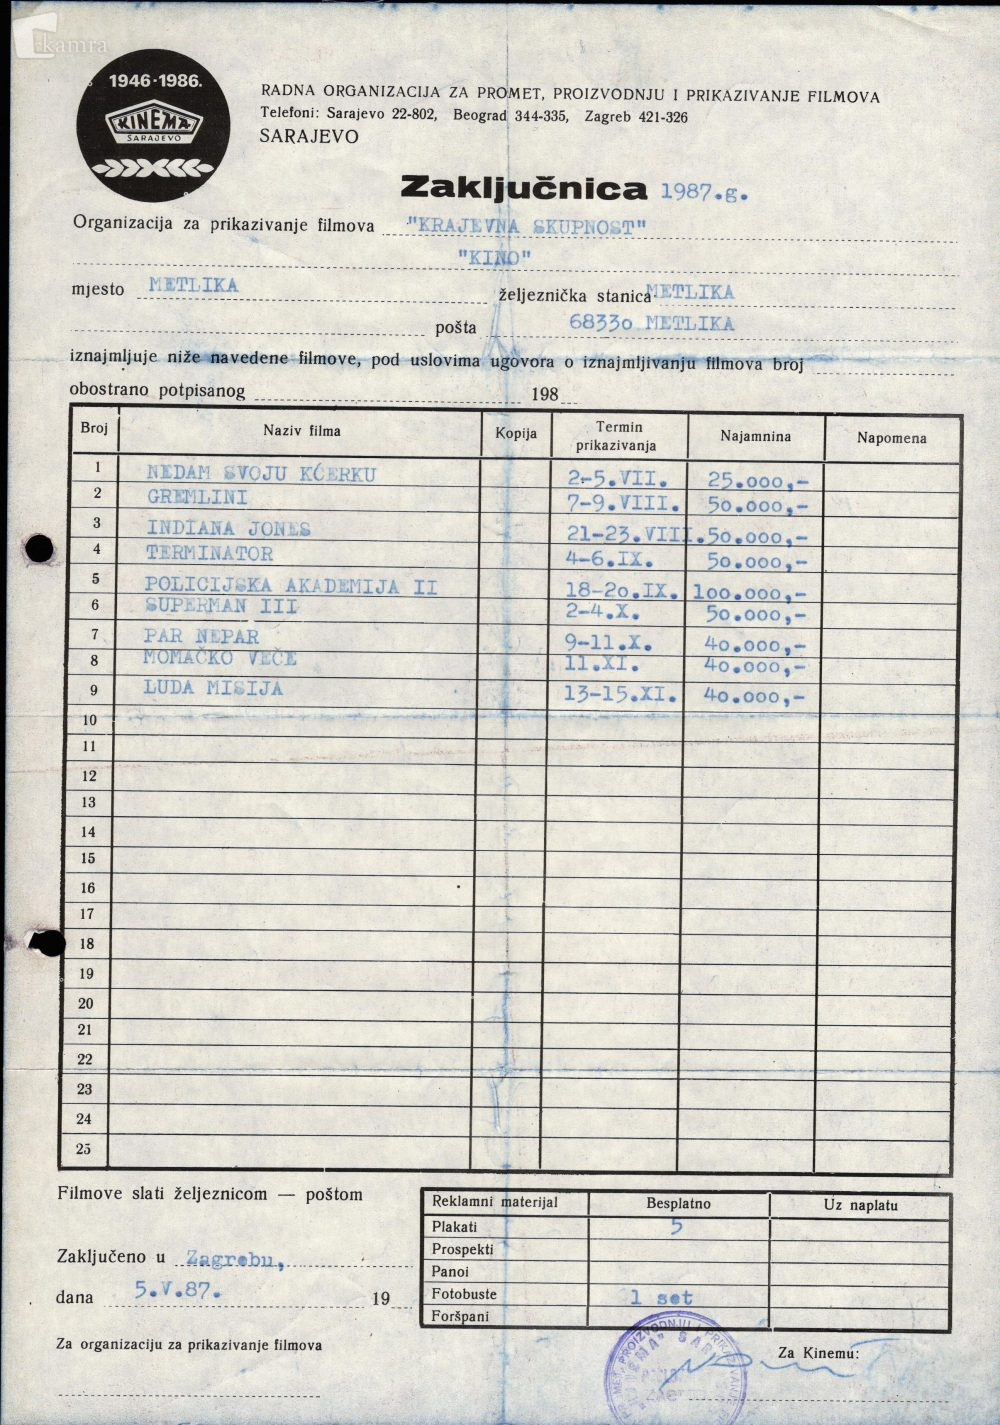 kamra
1946-1986.
KINEMA
SARAJEVO
RADNA ORGANIZACIJA ZA PROMET, PROIZVODNJU I PRIKAZIVANJE FILMOVA
Telefoni: Sarajevo 22-802, Beograd 344-335, Zagreb 421-326
SARAJEVO
Zaključnica 1987.g.
Organizacija za prikazivanje filmova "KRAJEVNA SKUPNOST"
"KINO"
mjesto METLIKA željeznička stanica METLIKA
pošta 68330 METLIKA
iznajmljuje niže navedene filmove, pod uslovima ugovora o iznajmljivanju filmova broj
obostrano potpisanog 198
Broj Naziv filma Kopija Termin prikazivanja Najamnina Napomena
1 NEDAM SVOJU KĆERKU 2-5.VII. 25.000,-
2 GREMLINI 7-9.VIII. 50.000,-
3 INDIANA JONES 21-23.VIII. 50.000,-
4 TERMINATOR 4-6.IX. 50.000,-
5 POLICIJSKA AKADEMIJA II 18-20.IX. 100.000,-
6 SUPERMAN III 2-4.X. 50.000,-
7 PAR NEPAR 9-11.X. 40.000,-
8 MOMAČKO VEČE 11.XI. 40.000,-
9 LUDA MISIJA 13-15.XI. 40.000,-
10
11
12
13
14
15
16
17
18
19
20
21
22
23
24
25
Filmove slati željeznicom — poštom
Reklamni materijal Besplatno Uz naplatu
Plakati 5
Prospekti
Panoi
Fotobuste 1 set
Foršpani
Zaključeno u Zagrebu,
dana 5.V.87. 19
Za organizaciju za prikazivanje filmova
Za Kinemu: